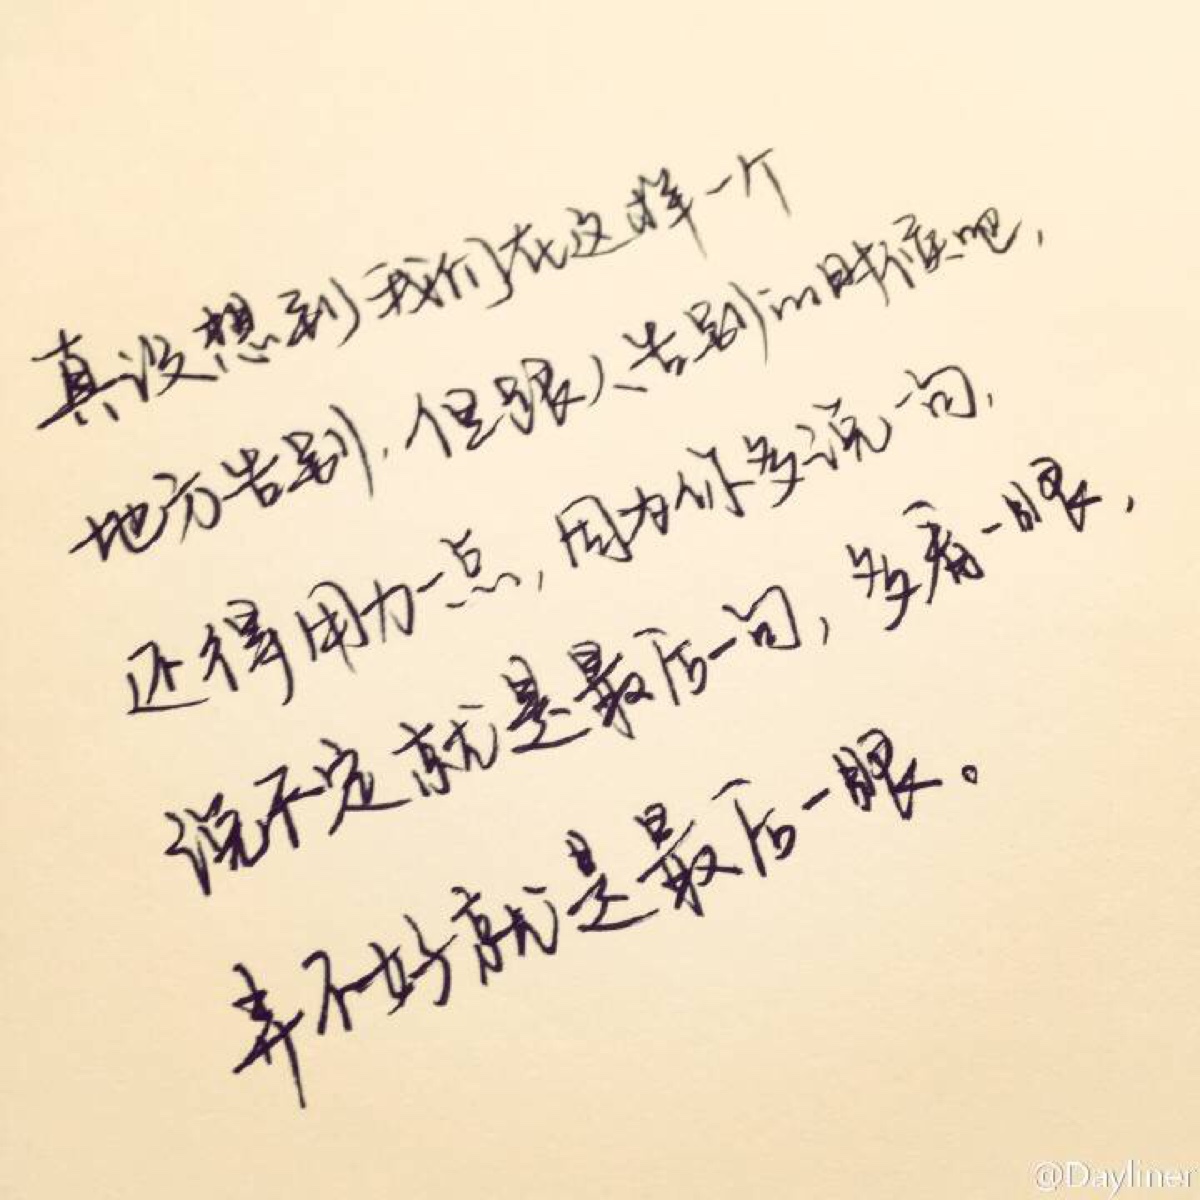 真没想到我们在这样一个
地方告别，但跟人告别的时候吧，
还得用力一点，因为你多说一句，
说不定就是最后一句，多看一眼，
弄不好就是最后一眼。
@Dayliner